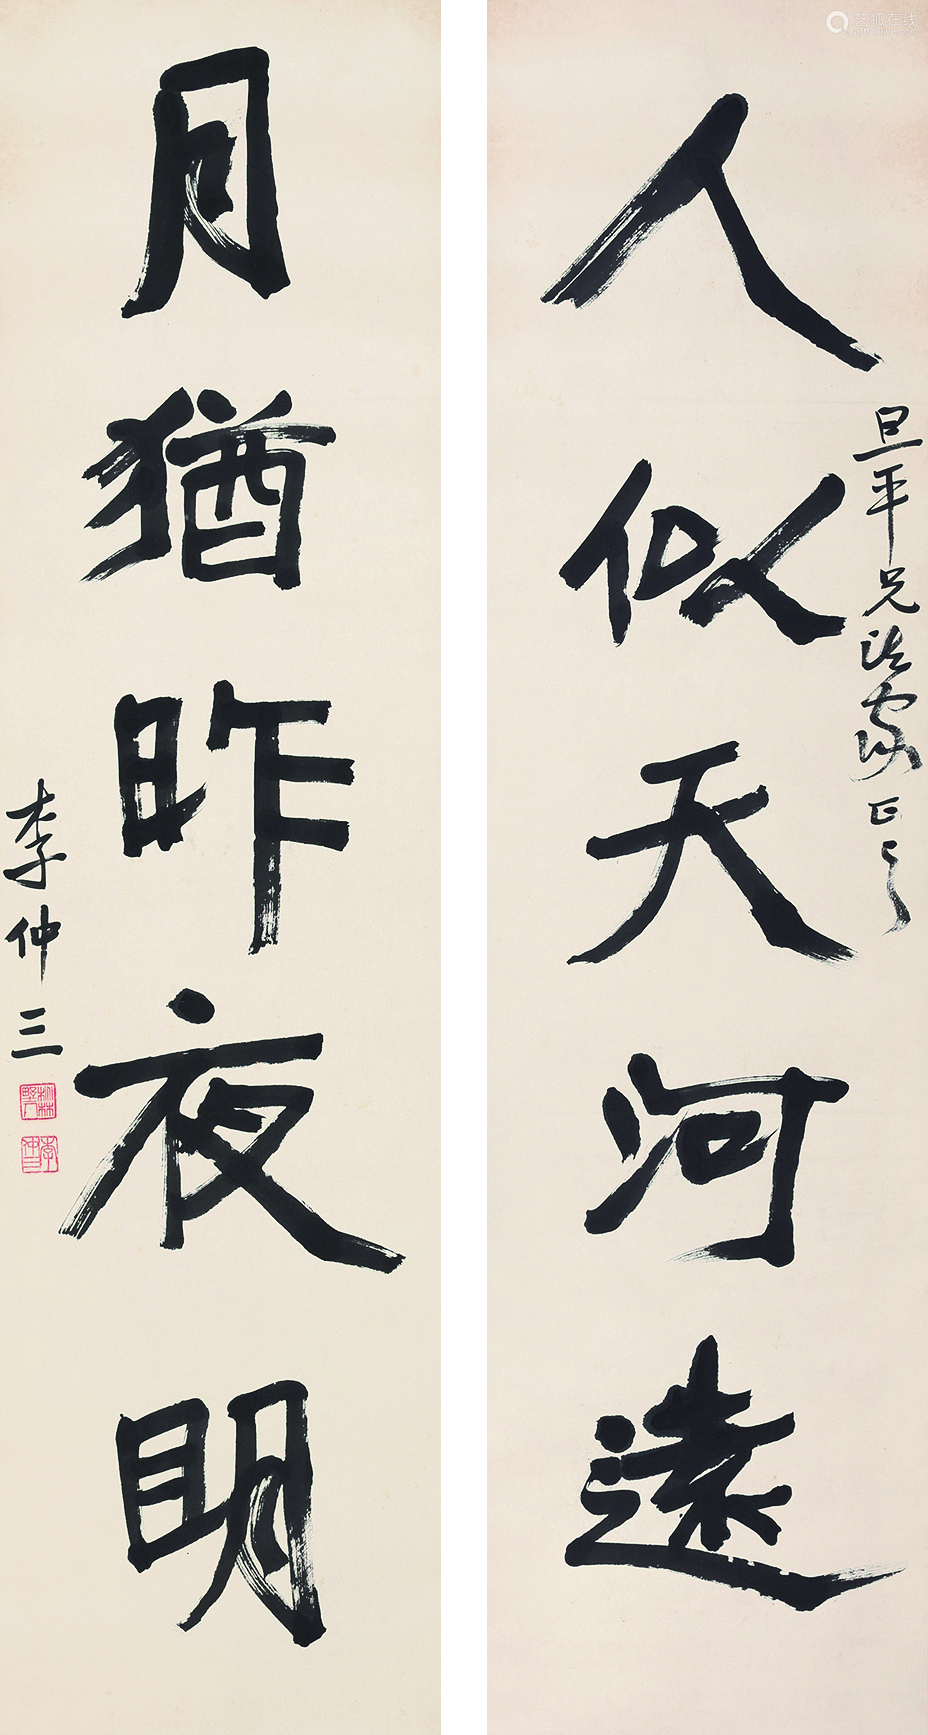 人似天河遠
旦平兄法家正之
月猶昨夜明
李仲三
李仲三
艺狐在线